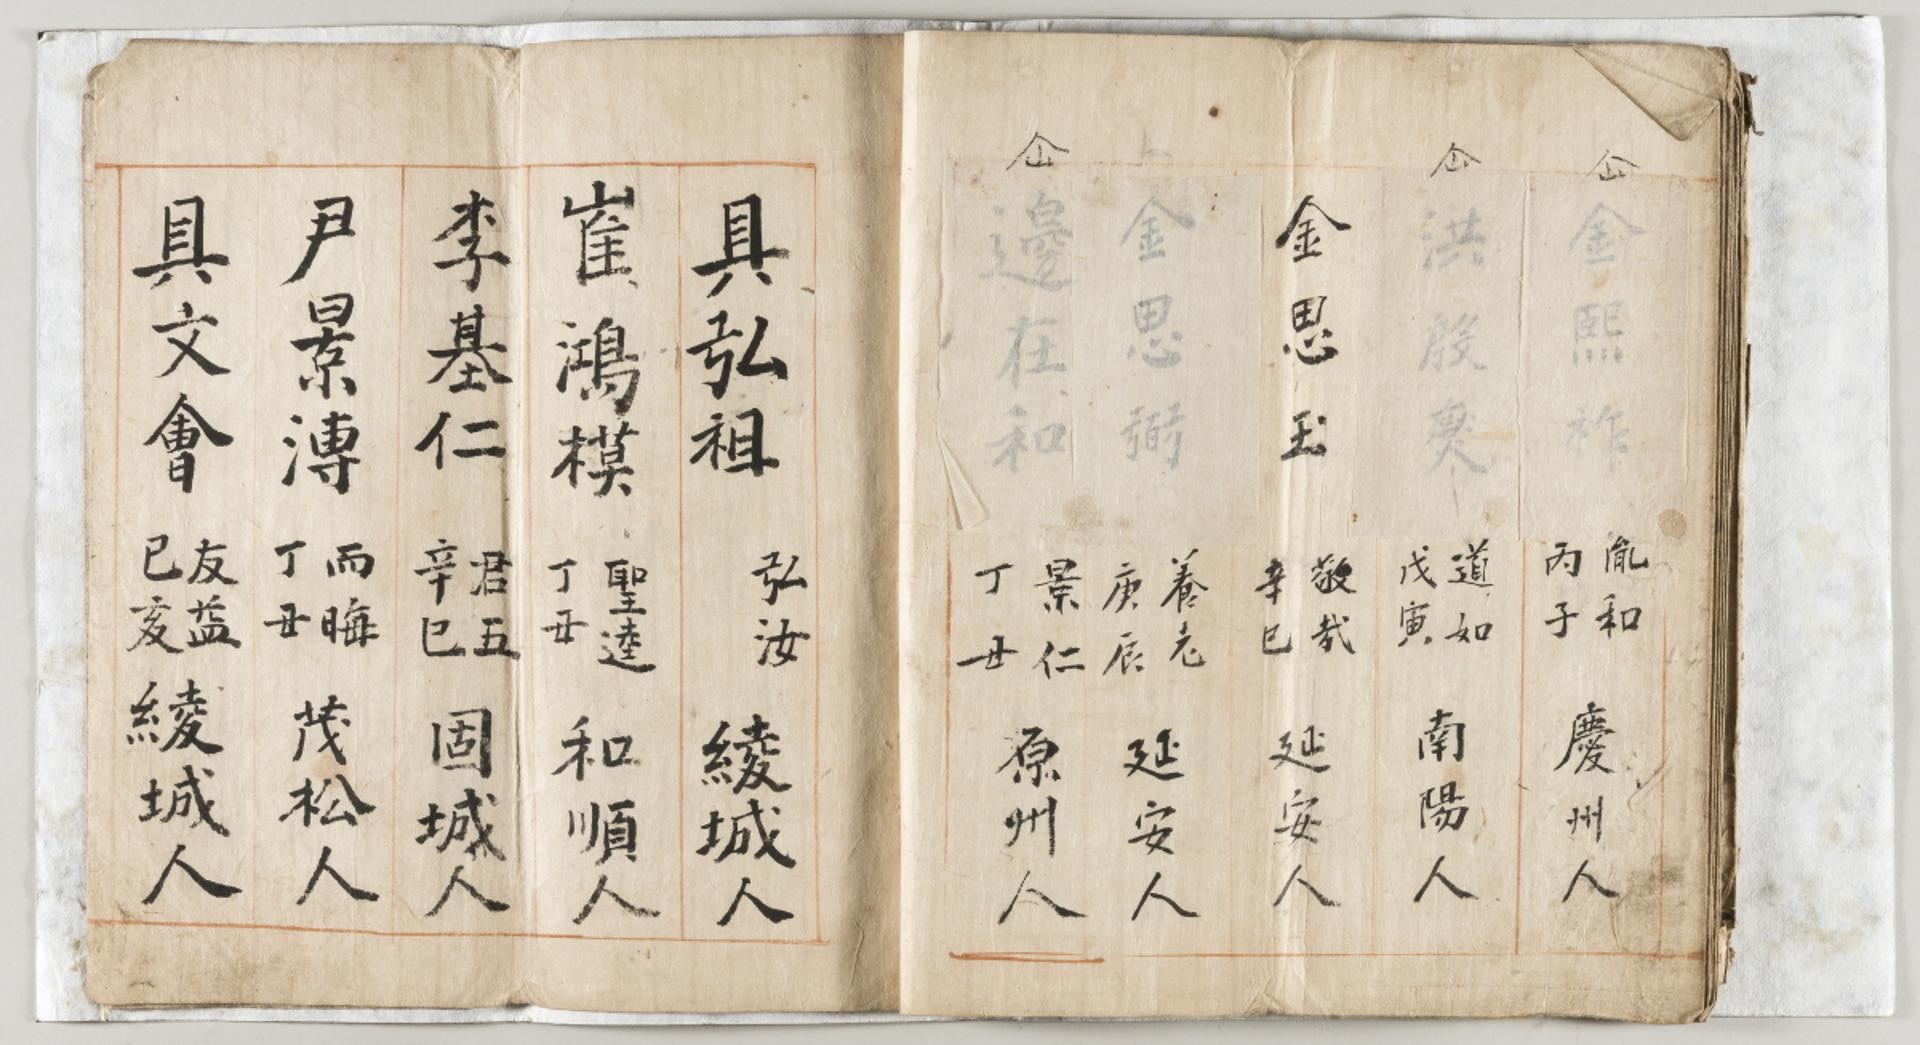 仚 金熙祚 胤和 丙子 慶州人
仚 洪殷奭 道如 戊寅 南陽人
金思玉 敬哉 辛巳 延安人
金思弼 養老 庚辰 延安人
仚 邊在和 景仁 丁丑 原州人
具弘祖 弘汝 綾城人
崔鴻模 聖逵 丁丑 和順人
李基仁 君五 辛巳 固城人
尹景溥 而晦 丁丑 茂松人
具文會 友益 已亥 綾城人